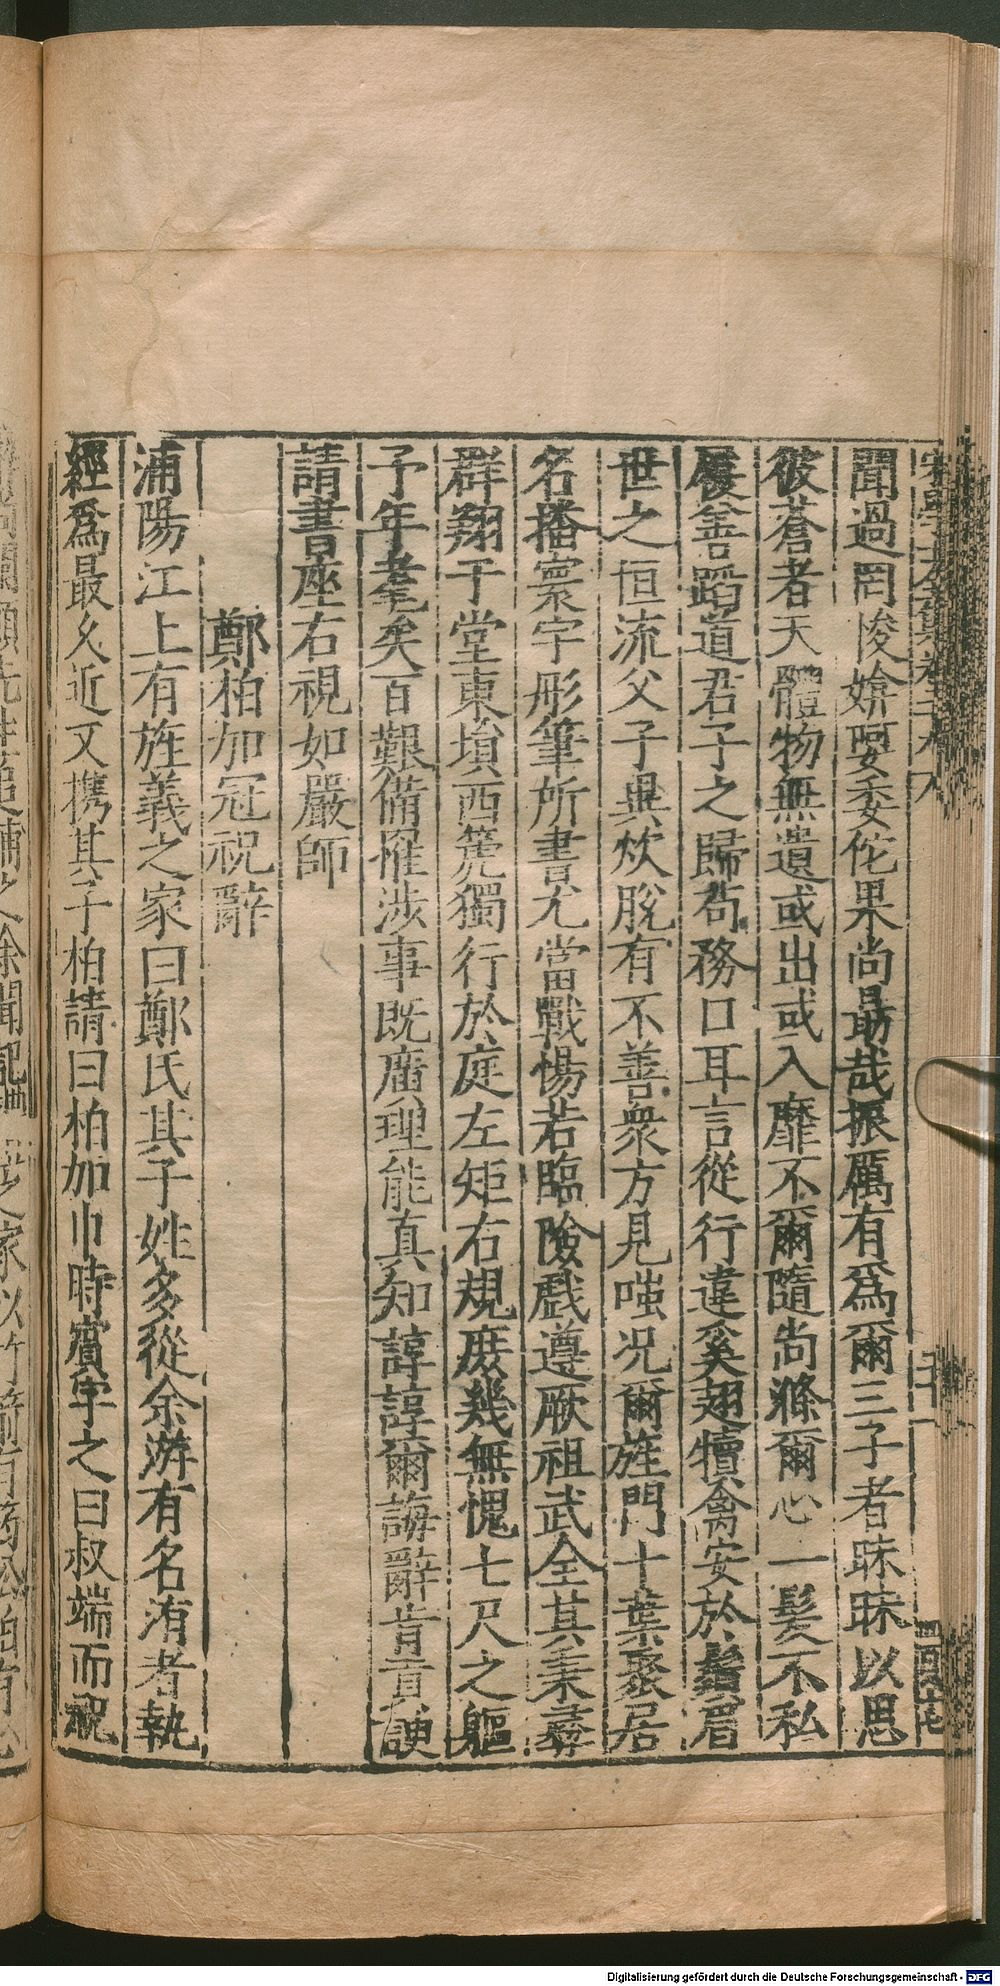 聞過罔悛媕婀委佗果尚勗哉振厲有爲爾三子者昧昧以思
彼蒼者天體物無遺或出或入靡不爾隨尚滌爾心一髮不私
履善蹈道君子之歸苟務口耳言從行違奚翅犢禽安於鬚眉
世之恒流父子異炊脫有不善衆方見嗤况爾旌門十葉聚居
名播寰宇彤筆所書尤當戰惕若臨險戲遵厥祖武全其秉彞
群翔于堂東塤西箎獨行於庭左矩右規庶幾無愧七尺之軀
予年耄矣百艱備罹涉事既廣理能真知諄諄爾誨辭肯貢諛
請書座右視如嚴師
鄭柏加冠祝辭
浦陽江上有旌義之家曰鄭氏其子姓多從余游有名洧者執
經爲最久近又携其子柏請曰柏加巾時賓字之曰叔端而祝
Digitalisierung gefördert durch die Deutsche Forschungsgemeinschaft - DFG